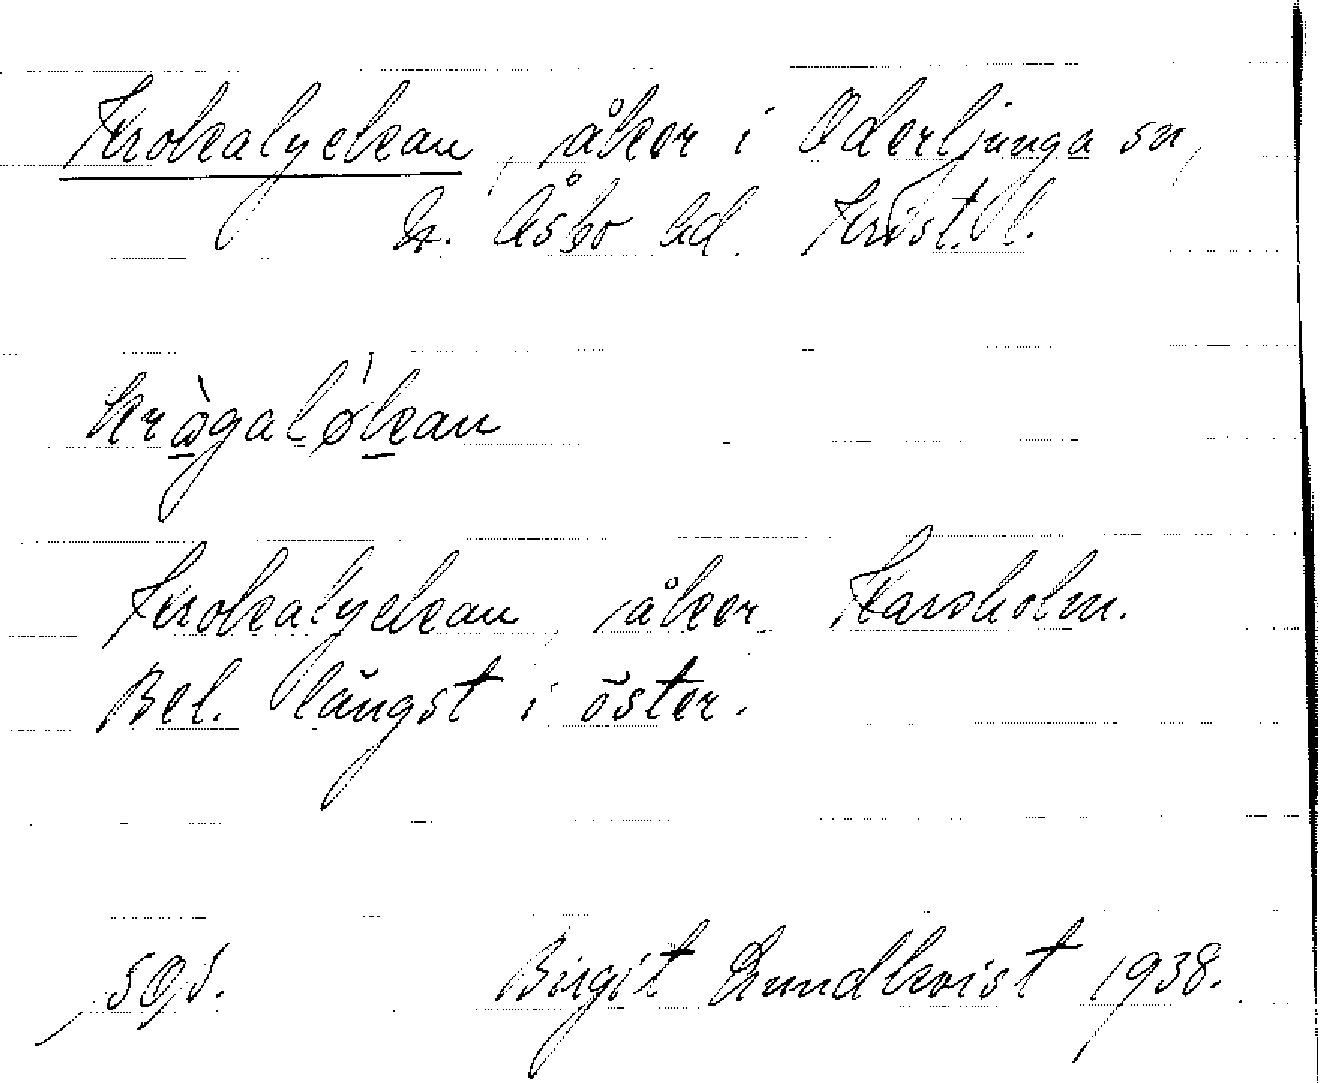 Krokalyckan, åker i Oderljunga sn,
N. Åsbo hd. Krist. l.
krògaløkan
Krokalyckan, åker Karsholm.
Bel. längst i öster.
Birgit Lundkvist 1938.